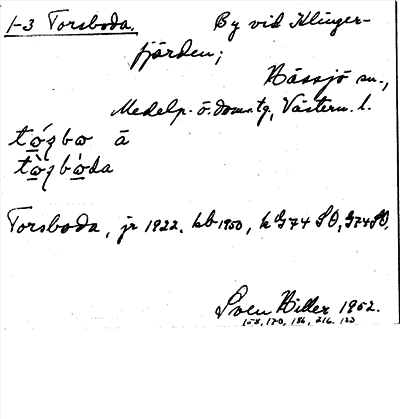 1-3 Torsboda. By vid Klinger-
fjärden;
Hässjö sn.,
Medelp. ö. domstg, Västern. l.
tǫ́zbo ā
tǫ̀zbǫ̀da
Torsboda, jr 1922. kb 1950, k G74 SO, G74 SO.
Sven Hiller 1952.
158, 170, 186, 216. 123